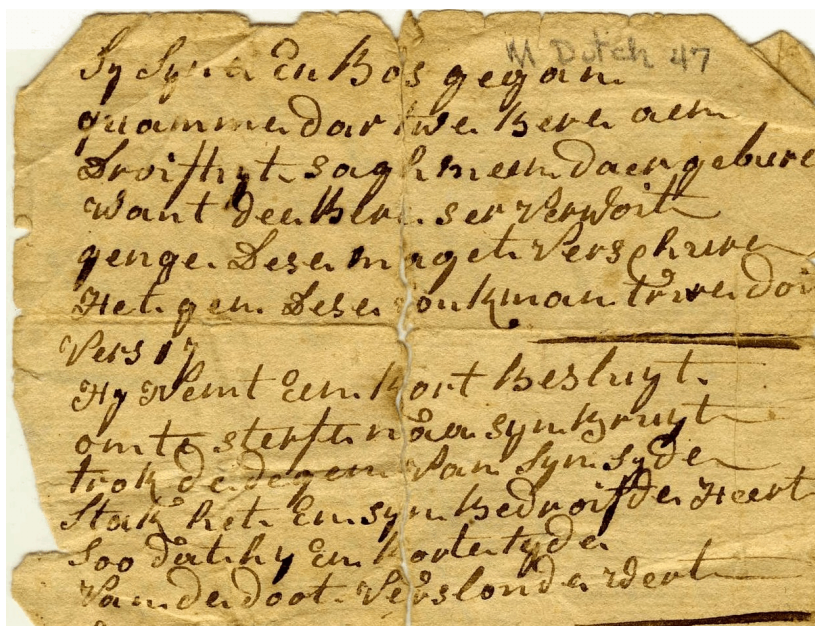 M Dutch 47
Sy Syn a En Bos gegan
quamme dar twe Bere aen
Droifhyt sagh meen daer gebure
Want dee Bere ser Verwoit
genge Dese maget Verschure
Het gen Dese Jonkman trure doi
Vers 17
Hy Nemt Een kort Besluyt
om te sterfte näa syn Bruyt
trok de degen Van Syn Syde
Stak het En syn Bedroifde Heert
Soo dat hy En korte tyde
Van de doot Verslonde Wert